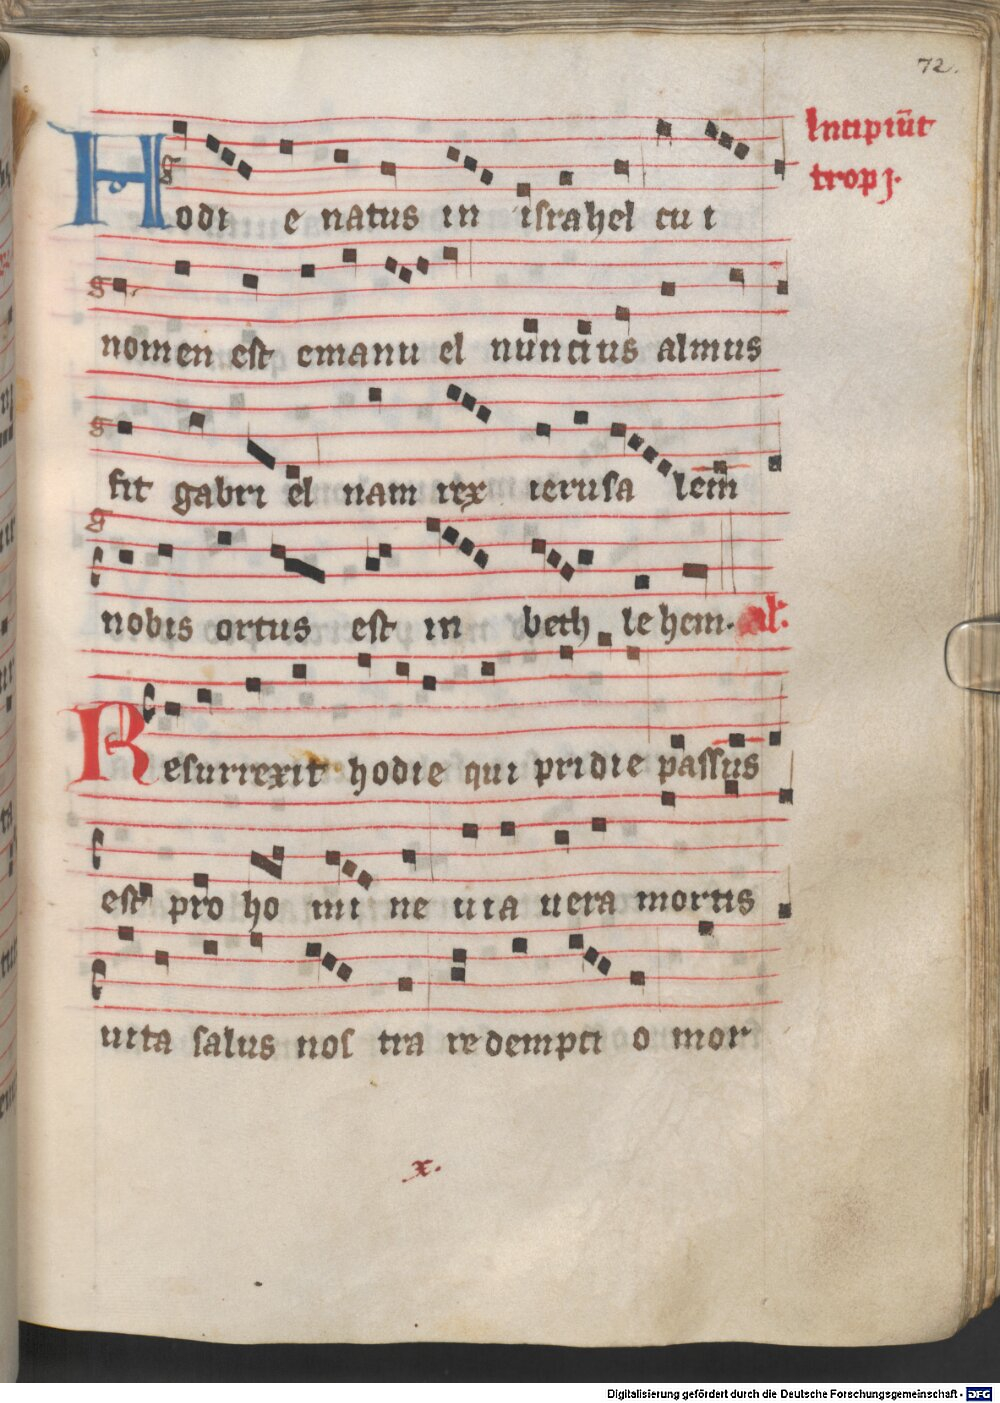 72.
Incipiūt
tropj.
Hodi e natus in israhel cu i
nomen est emanu el nuncius almus
fit gabri el nam rex ierusa lem
nobis ortus est in beth le hem. al:
Resurrexit hodie qui pridie passus
est pro ho mi ne uia uera mortis
uita salus nos tra redempti o mor
x.
Digitalisierung gefördert durch die Deutsche Forschungsgemeinschaft - DFG